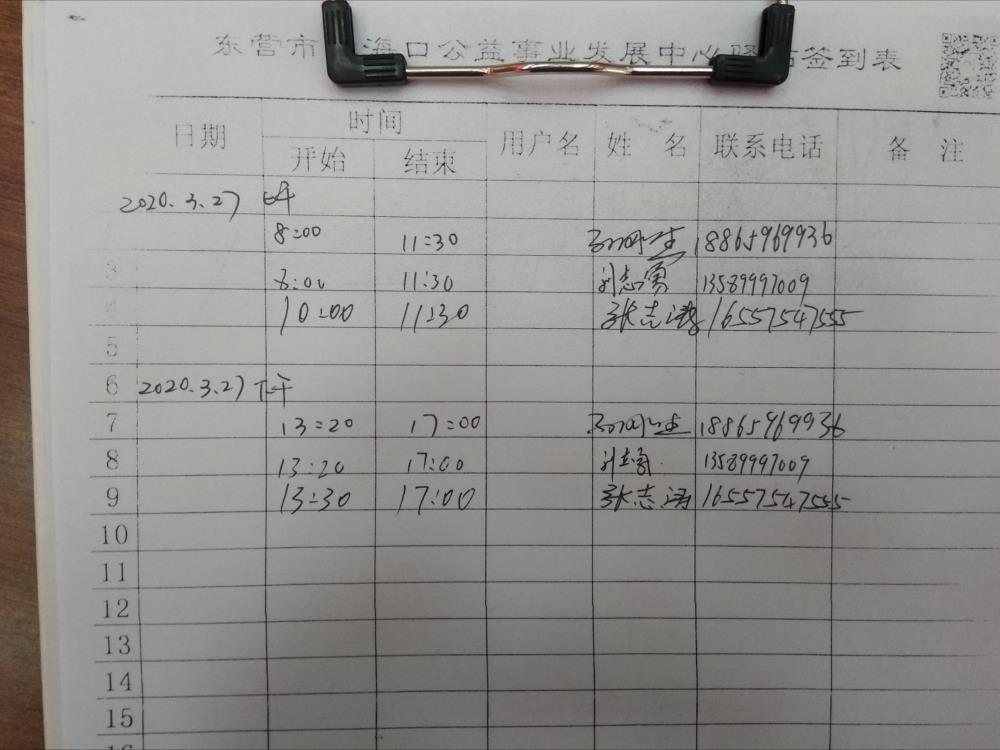 东营市 海口公益事业发展中心驿站签到表
日期 时间 用户名 姓 名 联系电话 备 注
开始 结束
2020.3.27 上午
8:00 11:30 18865969936
3 8:00 11:30 刘志勇 13589997009
4 10:00 11:30 张志涛 16557547555
5
6 2020.3.27 下午
7 13:20 17:00 18865969936
8 13:20 17:00 刘志勇 13589997009
9 13:30 17:00 张志涛 16557547555
10
11
12
13
14
15